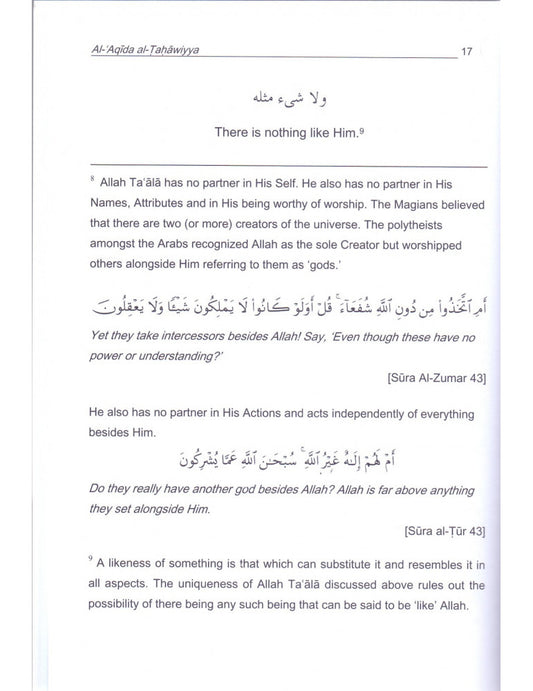 Al-'Aqīda al-Ṭaḥāwiyya 17
ولا شىء مثله
There is nothing like Him.⁹
⁸ Allah Ta'ālā has no partner in His Self. He also has no partner in His
Names, Attributes and in His being worthy of worship. The Magians believed
that there are two (or more) creators of the universe. The polytheists
amongst the Arabs recognized Allah as the sole Creator but worshipped
others alongside Him referring to them as 'gods.'
أَمِ ٱتَّخَذُواْ مِن دُونِ ٱللَّهِ شُفَعَآءَ ۚ قُلْ أَوَلَوْ كَانُواْ لَا يَمْلِكُونَ شَيْـًٔا وَلَا يَعْقِلُونَ
Yet they take intercessors besides Allah! Say, 'Even though these have no
power or understanding?'
[Sūra Al-Zumar 43]
He also has no partner in His Actions and acts independently of everything
besides Him.
أَمْ لَهُمْ إِلَـٰهٌ غَيْرُ ٱللَّهِ ۚ سُبْحَـٰنَ ٱللَّهِ عَمَّا يُشْرِكُونَ
Do they really have another god besides Allah? Allah is far above anything
they set alongside Him.
[Sūra al-Ṭūr 43]
⁹ A likeness of something is that which can substitute it and resembles it in
all aspects. The uniqueness of Allah Ta'ālā discussed above rules out the
possibility of there being any such being that can be said to be 'like' Allah.